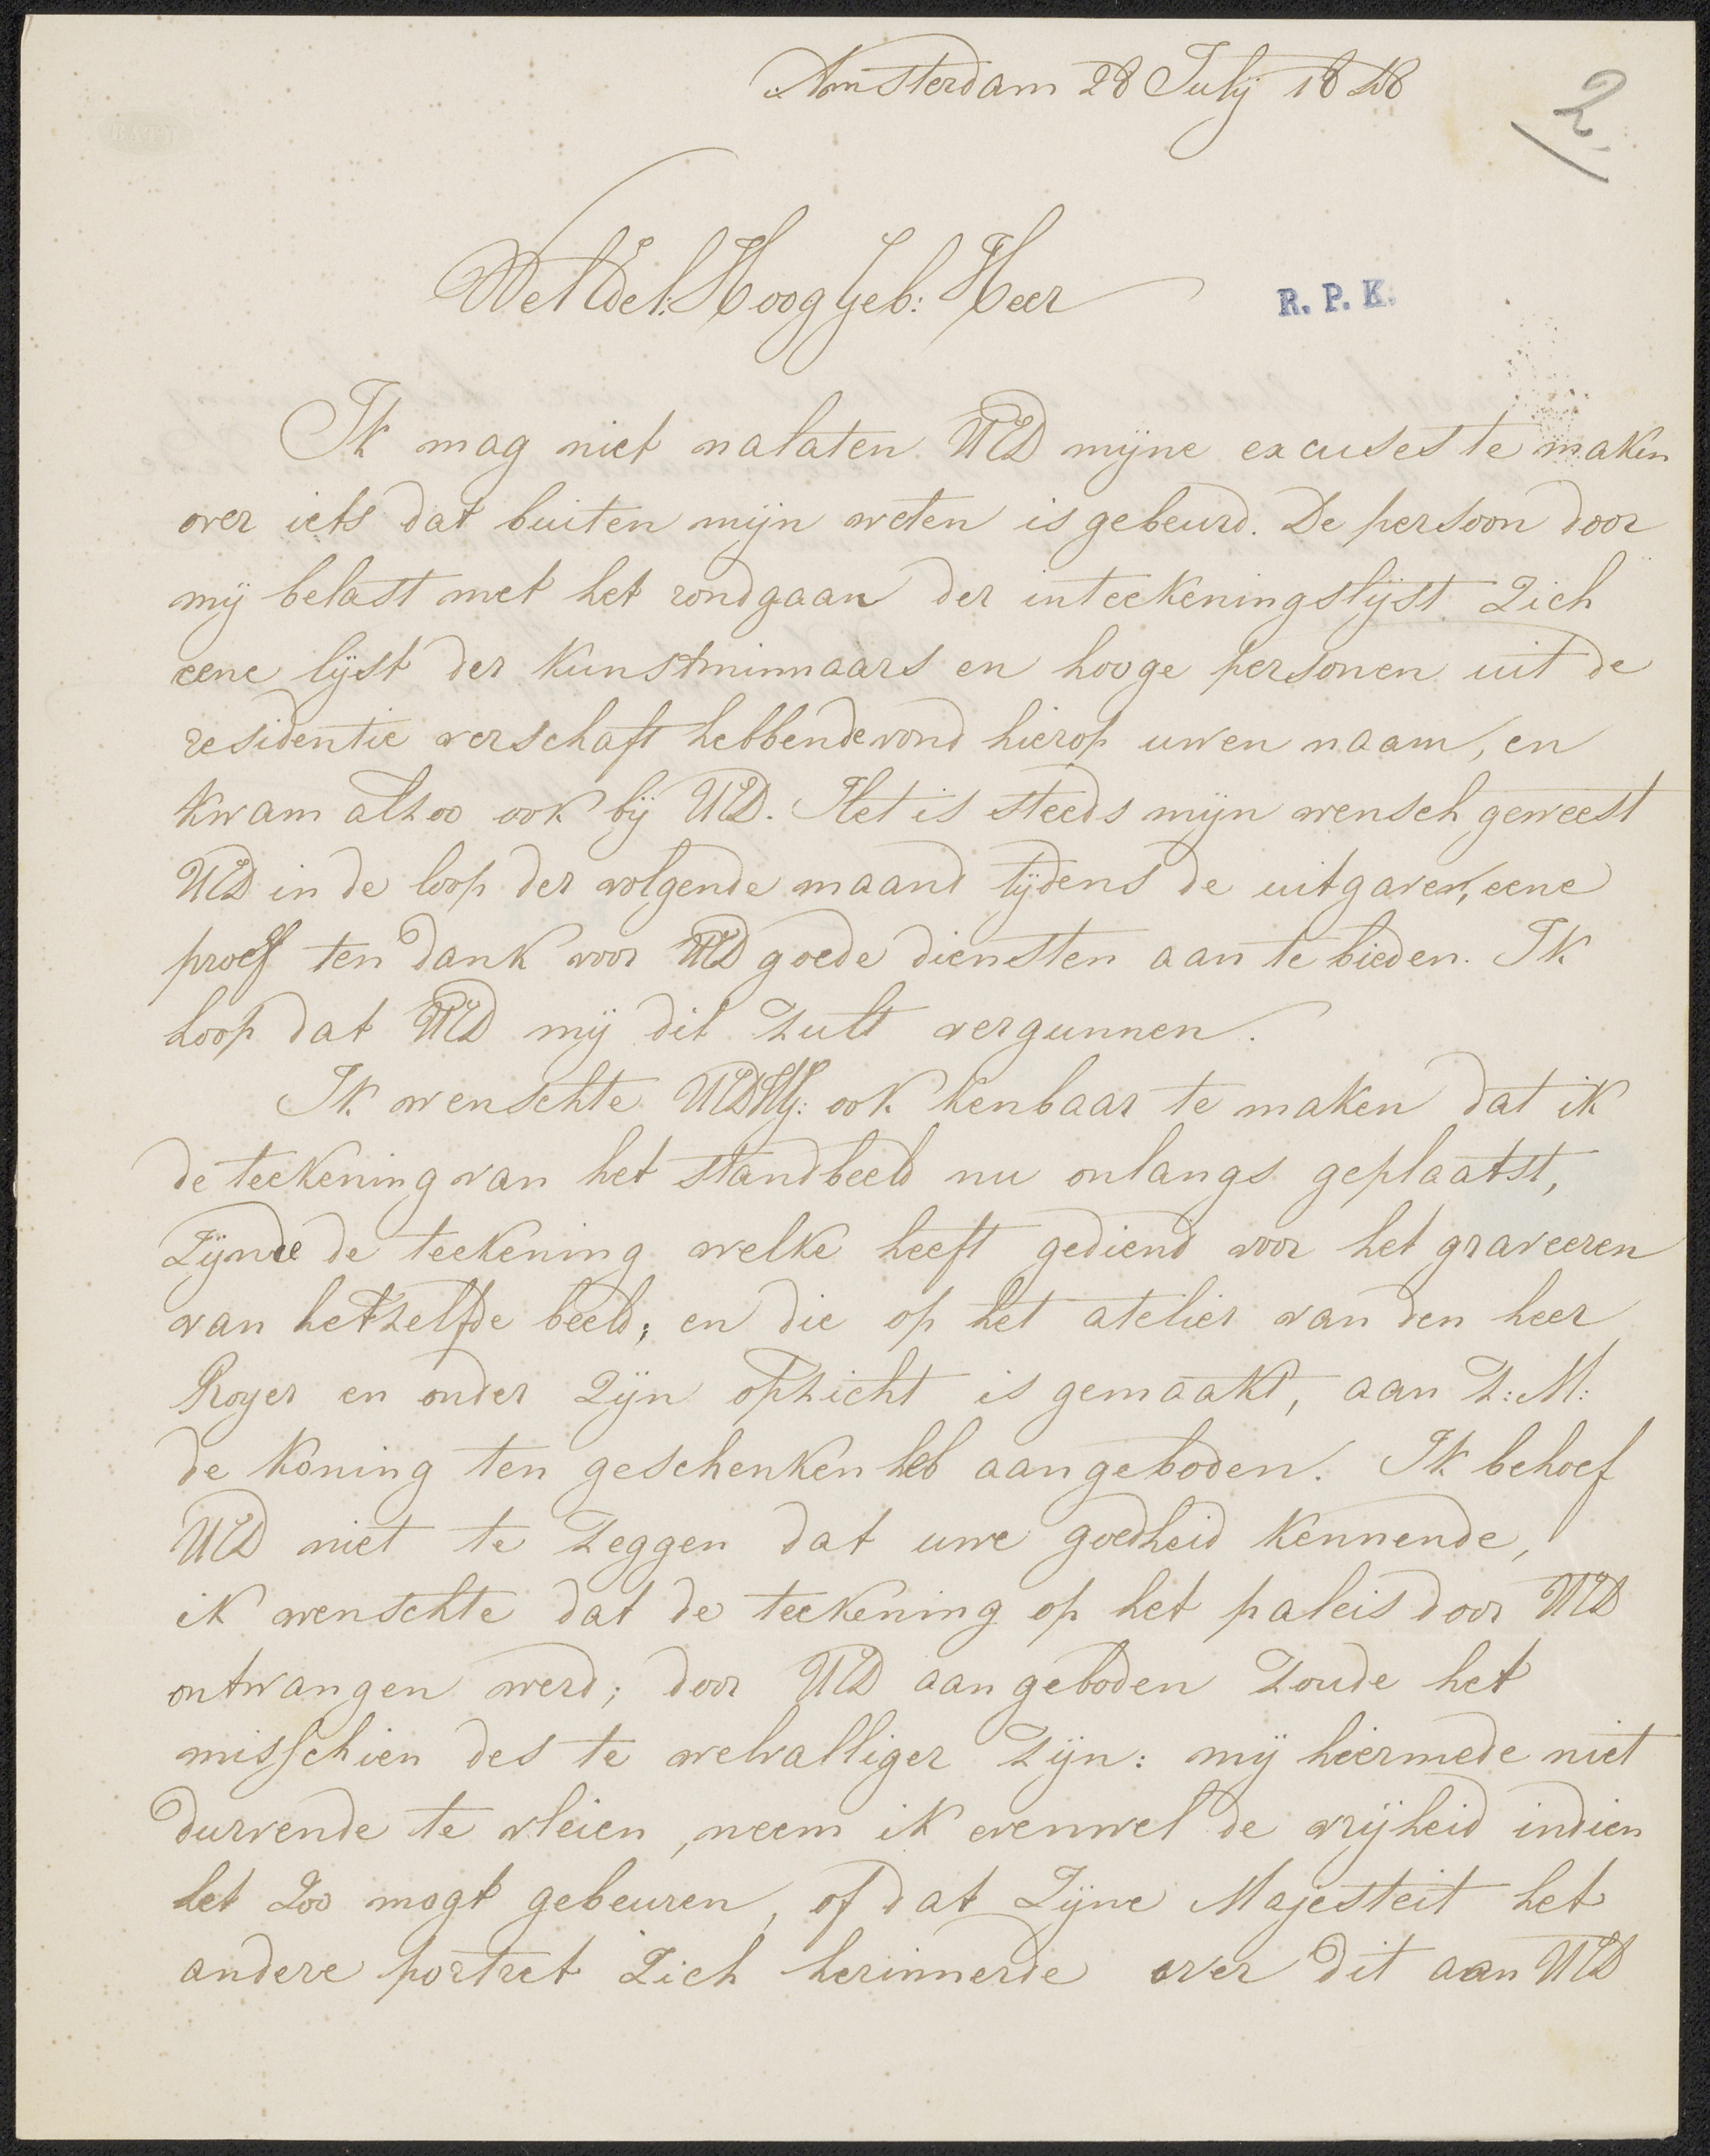 Amsterdam 28 Julij 1848
2
WelEdel: HoogGeb: Heer
R. P. K.
Ik mag niet nalaten UED mijne excuses te maken
over iets dat buiten mijn weten is gebeurd. De persoon door
mij belast met het rondgaan der inteekeningslijst zich
eene lijst der kunstminnaars en hooge personen uit de
residentie verschaft hebbende vond hierop uwen naam, en
kwam alzoo ook bij UED. Het is steeds mijn wensch geweest
UED in de loop der volgende maand tijdens de uitgaven, eene
proef ten dank voor UED goede diensten aan te bieden. Ik
hoop dat UED mij dit zult vergunnen.
Ik wenschte UEDHG: ook kenbaar te maken dat ik
de teekening van het standbeeld nu onlangs geplaatst,
zijnde de teekening welke heeft gediend voor het graveeren
van hetzelfde beeld; en die op het atelier van den heer
Royer en onder zijn opzicht is gemaakt, aan Z: M:
de Koning ten geschenken heb aangeboden. Ik behoef
UED niet te zeggen dat uwe goedheid kennende,
ik wenschte dat de teekening op het paleis door UED
ontvangen werd; door UED aangeboden zoude het
misschien des te welvalliger zijn: mij hiermede niet
durvende te vleien, neem ik evenwel de vrijheid indien
het zoo mogt gebeuren, of dat Zijne Majesteit het
andere portret zich herinnerde over dit aan UED